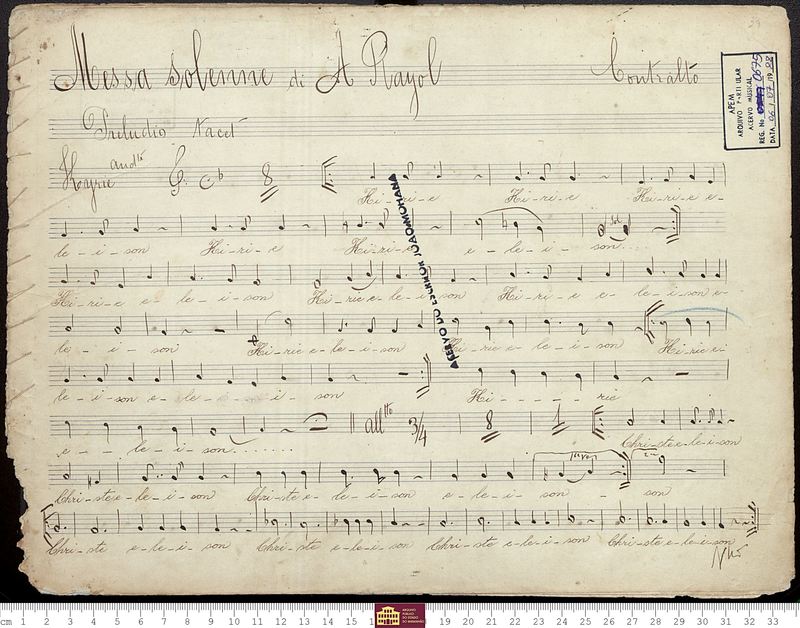 Messa solenne di A Rayol Contralto
APEM
ARQUIVO PARTICULAR
ACERVO MUSICAL
REG. No 0675
DATA
Preludio Tacet
Kyrie andte 8
Ki-ri-e Ki-ri-e Ki-ri-e e-
le-i-son Ki-ri-e Ki-ri-e e-le-i-son....
ACERVO DO ESCRITOR JOÃO MOHANA
Ki-ri-e e-le-i-son Ki-rie e-le-i-son Ki-ri-e e le-i-son e-
le-i-son Ki-rie e-le-i-son Ki-rie e-le-i-son Ki-rie e-
le-i-son e-le-i-son Ki-----rie
alltto 3/4 8 1
e-le-i-son....... Chri-ste e-le-i-son
1a vez 2a
Chri-ste e-le-i-son Chri-ste e-le-i-son e-le-i-son-son
Chri-ste e-le-i-son Chri-ste e-le-i-son Chri-ste e-le-i-son Chri-ste e-le-i-son
cm 1 2 3 4 5 6 7 8 9 10 11 12 13 14 15 ARQUIVO PÚBLICO DO ESTADO DO MARANHÃO 19 20 21 22 23 24 25 26 27 28 29 30 31 32 33